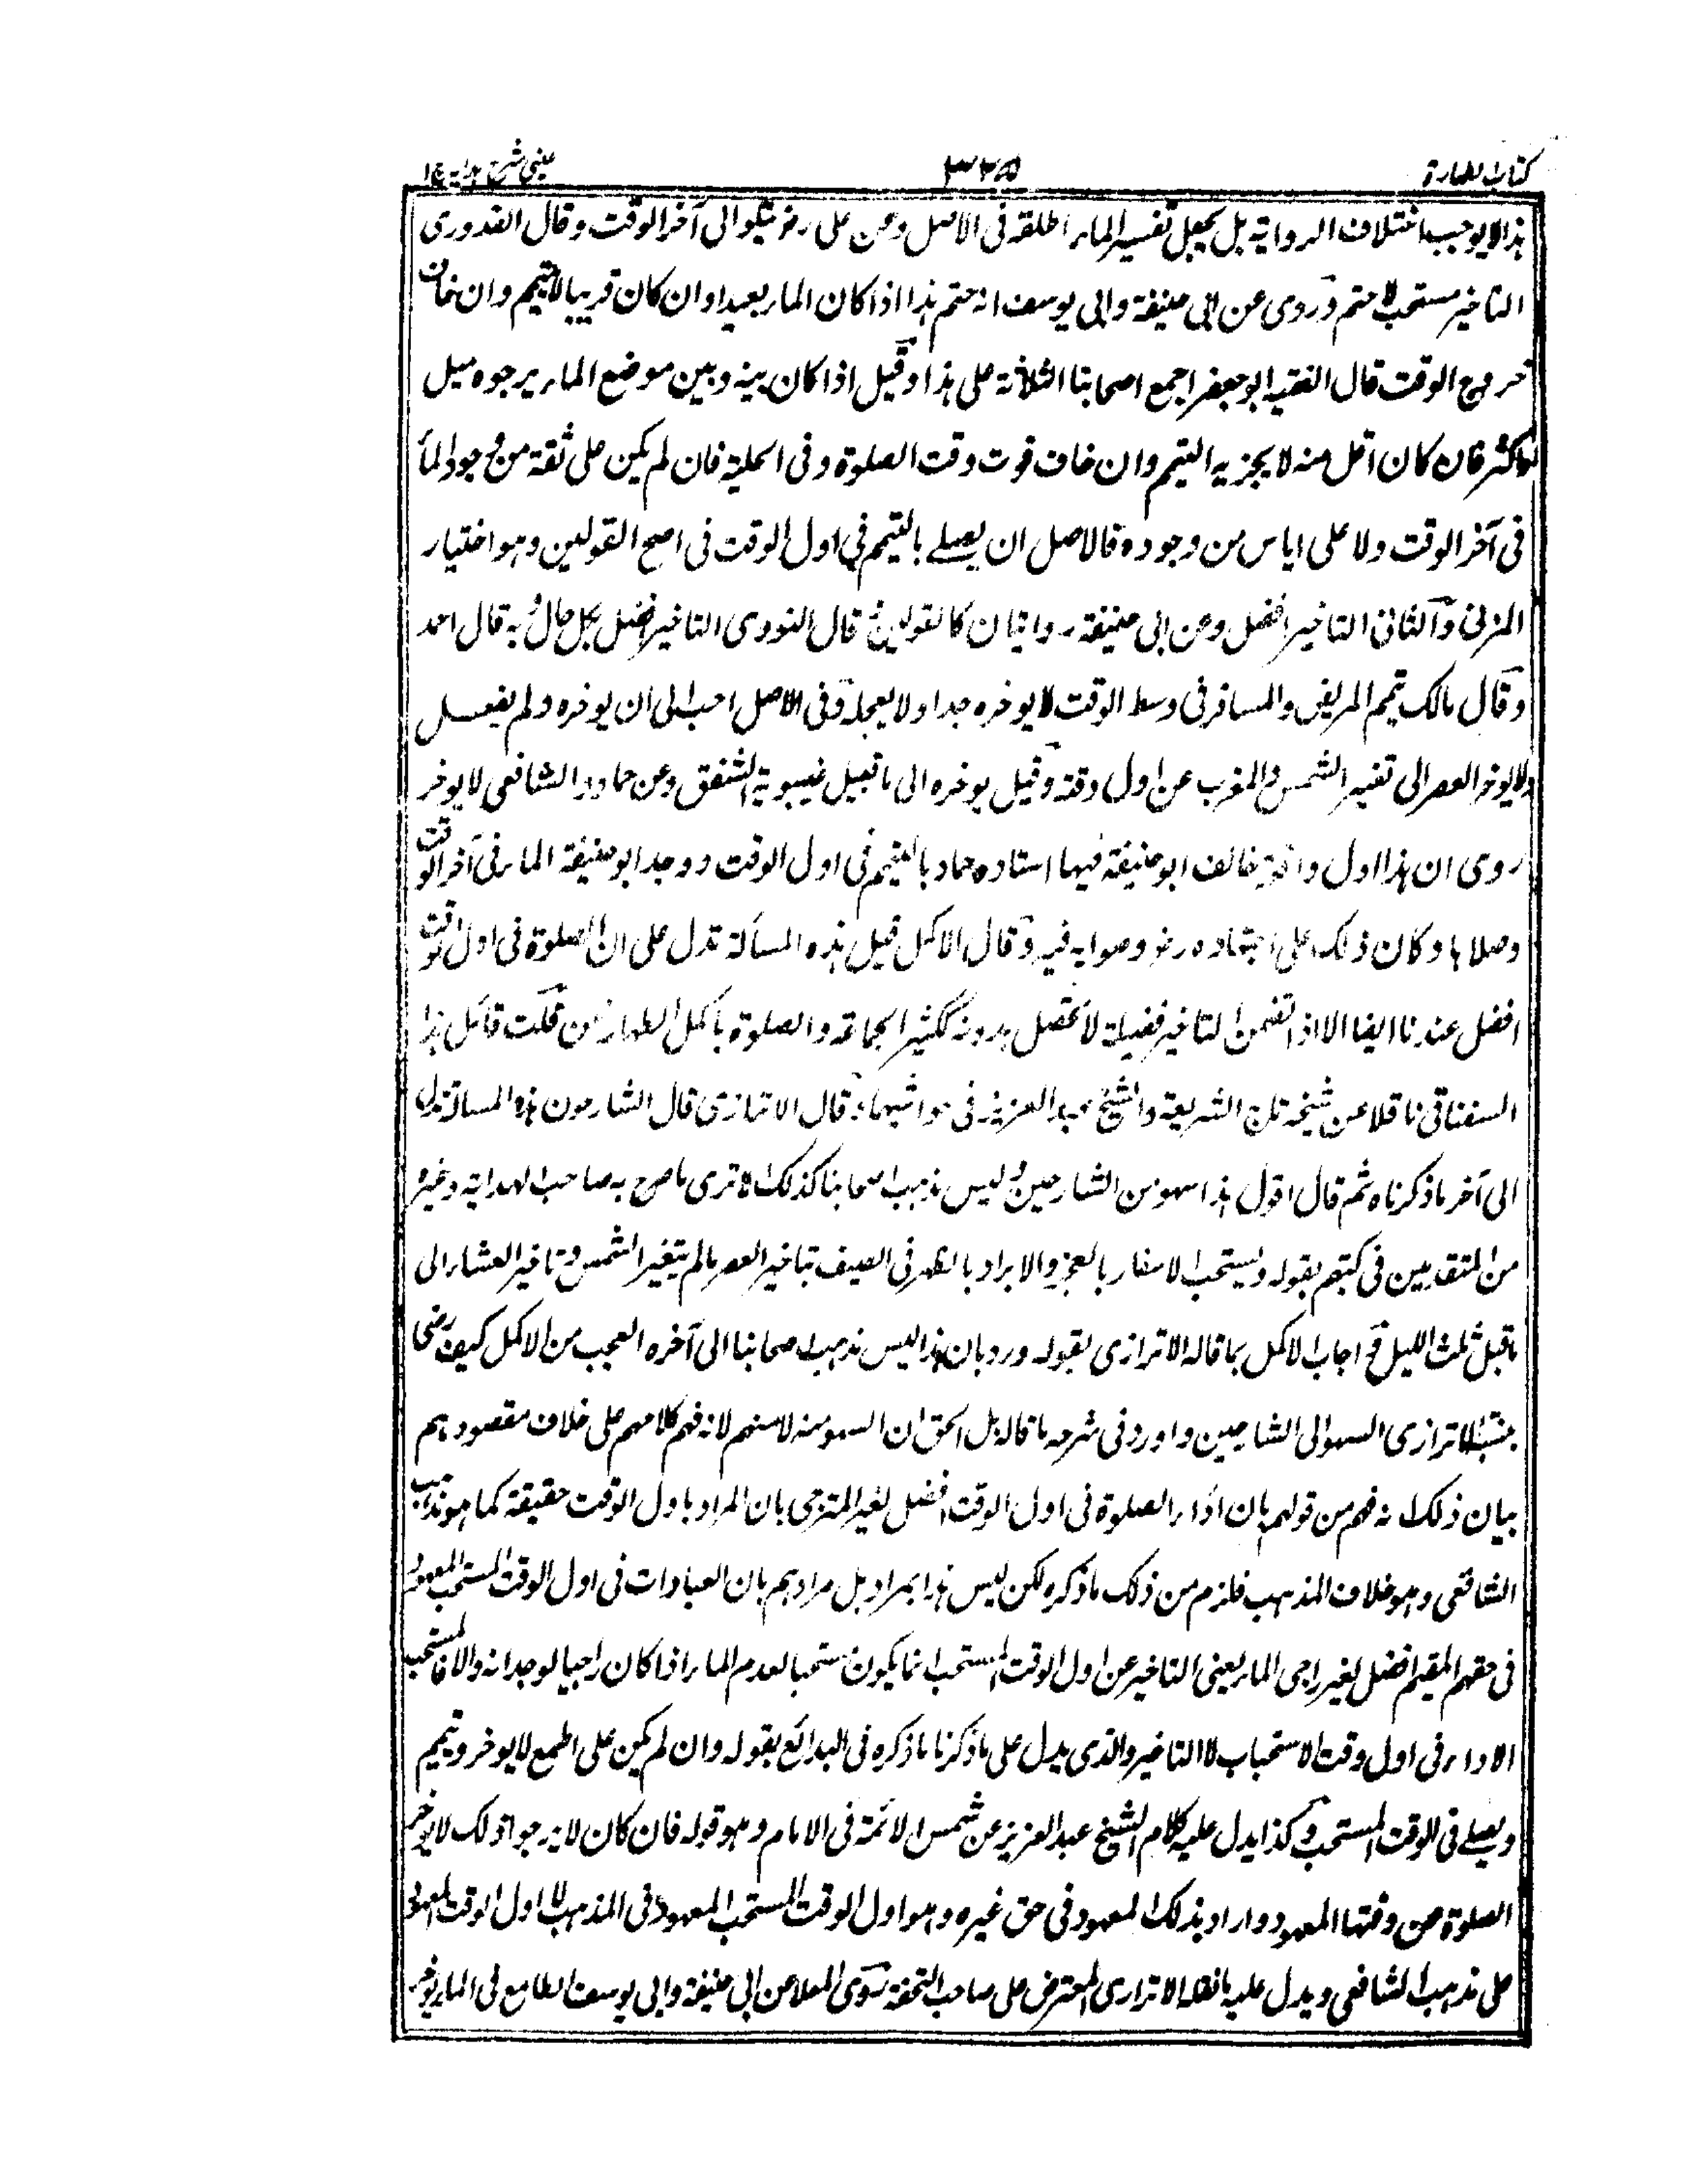 كتاب الطهارة
٣٢٥
عینی شرح ہدایہ ج ١
ہذا لا یوجب اختلاف الروایۃ بل یجعل تفسیر الماء اطلقہ فی الاصل وعن علی رضہ یتلو الی آخر الوقت وقال القدوری
التاخیر مستحب لا حتم وروی عن ابی حنیفۃ وابی یوسف انہ حتم ہذا اذا کان الماء بعیدا وان کان قریبا لا یتیمم وان خاف
خروج الوقت قال الفقیہ ابو جعفر اجمع اصحابنا الثلاثۃ علی ہذا وقیل اذا کان بینہ وبین موضع الماء یرجوہ میل
او اکثر فان کان اقل منہ لا یجزیہ التیمم وان خاف فوت وقت الصلوۃ وفی الحلیۃ فان لم یکن علی ثقۃ من وجود الماء
فی آخر الوقت ولا علی ایاس من وجودہ فالاصل ان یصلے بالتیمم فی اول الوقت فی اصح القولین وہو اختیار
المزنی والثانی التاخیر افضل وعن ابی حنیفۃ روایتان کالقولین قال النووی التاخیر افضل بکل حال وبہ قال احمد
وقال مالک یتیمم المریض والمسافر فی وسط الوقت لا یوخرہ جدا ولا یعجلہ وفی الاصل احب الی ان یوخرہ ولم یفصل
ولا یوخر العصر الی تغیر الشمس والمغرب عن اول وقتہ وقیل یوخرہ الی ما قبیل غیبوبۃ الشفق وعن حماد والشافعی لا یوخر
روی ان ہذا اول واقعۃ خالف ابو حنیفۃ فیہا استادہ حماد بالتیمم فی اول الوقت ووجد ابو حنیفۃ الماء فی آخر الوقت
وصلاہا وکان ذلک علی اجتہادہ رضہ وصوابہ فیہ وقال الاکمل قیل ہذہ المسألۃ تدل علی ان الصلوۃ فی اول الوقت
افضل عندنا ایضا الا اذا تضمن التاخیر فضیلۃ لا تحصل بدونہ کتکثیر الجماعۃ والصلوۃ باکمل الطہارتین قلت قائل ہذا
السغناقی ناقلا عن شیخہ تاج الشریعۃ والشیخ عبد العزیز فی حواشیہما وقال الاترازی قال الشارحون ہذہ المسألۃ تدل
الی آخر ما ذکرناہ ثم قال اقول ہذا سہو من الشارحین ولیس مذہب اصحابنا کذلک الا تری ما صرح بہ صاحب الہدایۃ وغیرہ
من المتقدمین فی کتبہم بقولہ ویستحب الاسفار بالفجر والابراد بالظہر فی الصیف تاخیر العصر ما لم یتغیر الشمس وتاخیر العشاء الی
ما قبل ثلث اللیل اجاب الاکمل بما قالہ الاترازی بقولہ ورد بان ہذا لیس مذہب اصحابنا الی آخرہ العجب من الاکمل کیف رضی
بنسبۃ الاترازی السہو الی الشارحین واورد فی شرحہ ما قالہ بل الحق ان السہو منہ لا منہم لانہ فہم کلامہم علی خلاف مقصودہم
بیان ذلک انہ فہم من قولہم بان اداء الصلوۃ فی اول الوقت افضل لغیر المترجی بان المراد باول الوقت حقیقۃ کما ہو مذہب
الشافعی وہو خلاف المذہب فلزم من ذلک ما ذکرہ لکن لیس ہذا بمراد بل مرادہم بان العبادات فی اول الوقت المستحب المعہود
فی حقہم المقیم افضل لغیر راجی الماء یعنی التاخیر عن اول الوقت المستحب انما یکون مستحبا لعدم الماء اذا کان راجیا لوجدانہ والا فالمستحب
الاداء فی اول وقت الاستحباب لا التاخیر والذی یدل علی ما ذکرنا ما ذکرہ فی البدائع بقولہ وان لم یکن علی اطمع لا یوخر ویتیمم
ویصلے فی الوقت المستحب وکذا یدل علیہ کلام الشیخ عبد العزیز عن شمس الائمۃ فی الامام وہو قولہ فان کان لا یرجوا ذلک لا یوخر
الصلوۃ عن وقتہا المعہود واراد بذلک المعہود فی حق غیرہ وہو اول الوقت المستحب المعہود فی المذہب لا اول الوقت المعہود
علی مذہب الشافعی ویدل علیہ ما نقلہ الاترازی المعترض علی صاحب التحفۃ روی المعلا عن ابی حنیفۃ وابی یوسف الطامع فی الماء یوخر